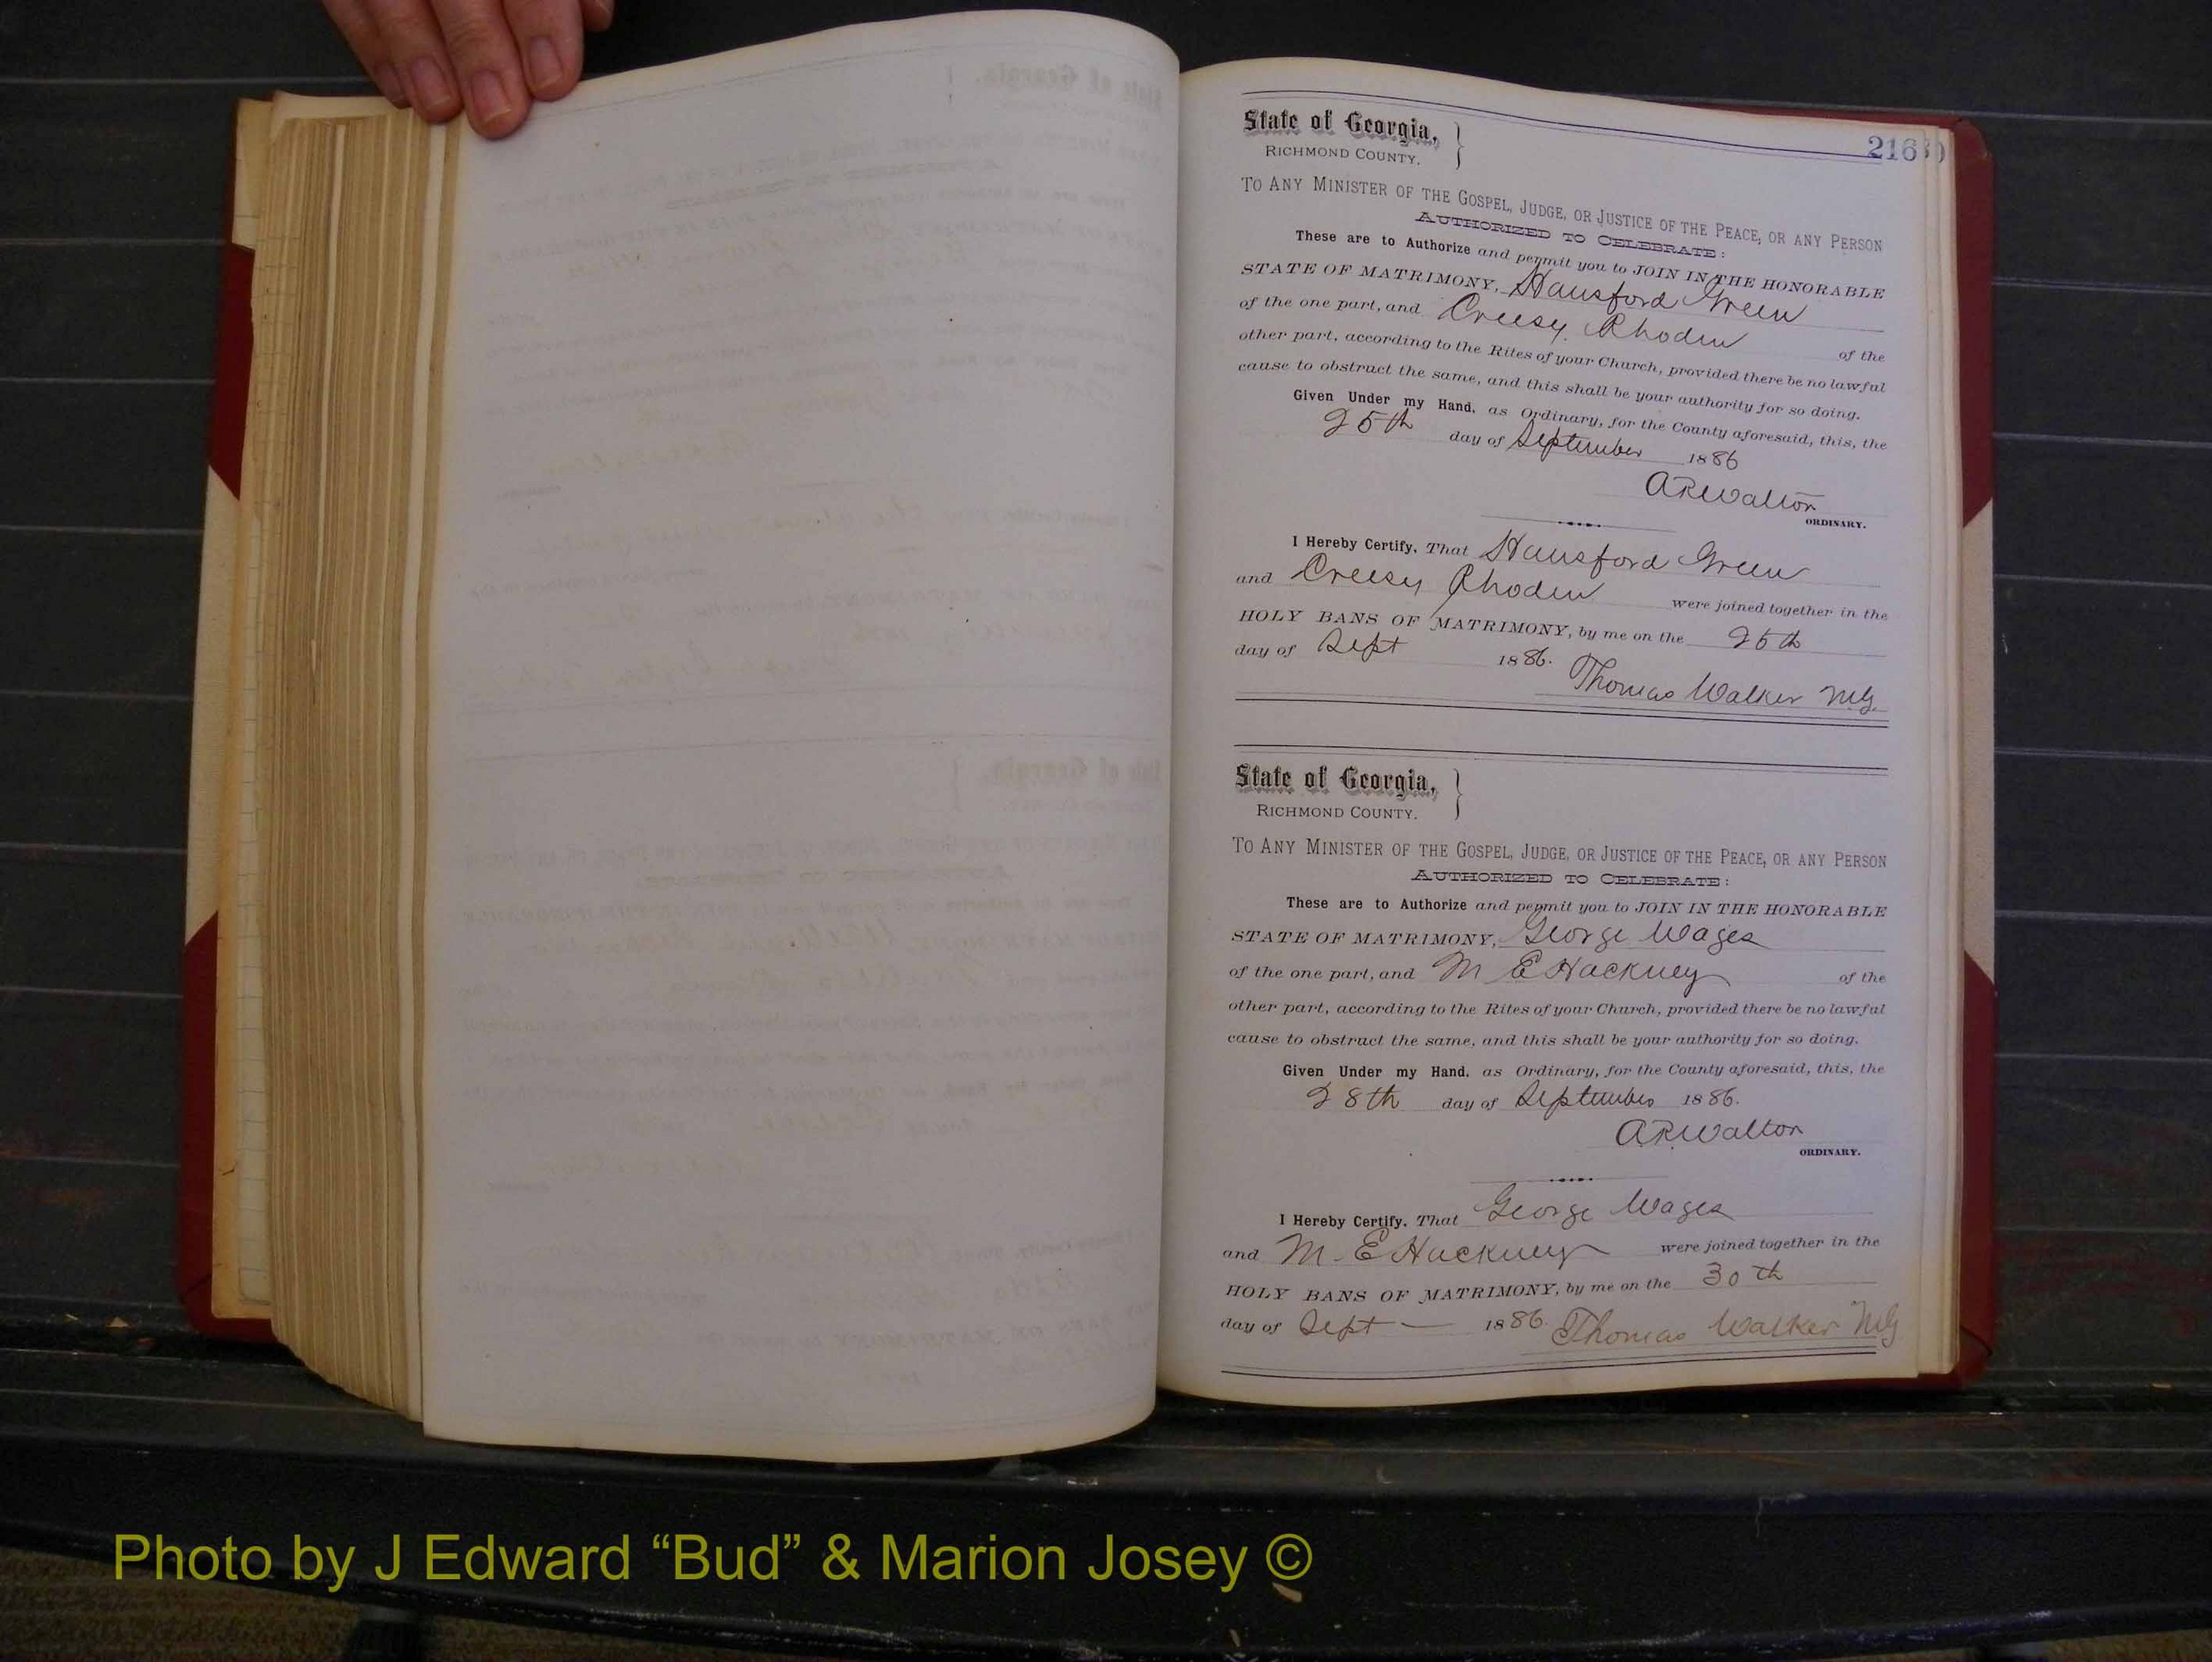 216
State of Georgia,
RICHMOND COUNTY.
TO ANY MINISTER OF THE GOSPEL, JUDGE, OR JUSTICE OF THE PEACE, OR ANY PERSON
AUTHORIZED TO CELEBRATE:
These are to Authorize and permit you to JOIN IN THE HONORABLE
STATE OF MATRIMONY, Hansford Green
of the one part, and Creesy Rhoden of the
other part, according to the Rites of your Church, provided there be no lawful
cause to obstruct the same, and this shall be your authority for so doing.
Given Under my Hand, as Ordinary, for the County aforesaid, this, the
25th day of September 1886
A R Walton
ORDINARY.
I Hereby Certify, That Hansford Green
and Creesy Rhoden were joined together in the
HOLY BANS OF MATRIMONY, by me on the 25th
day of Sept 1886. Thomas Walker M.G.
State of Georgia,
RICHMOND COUNTY.
TO ANY MINISTER OF THE GOSPEL, JUDGE, OR JUSTICE OF THE PEACE, OR ANY PERSON
AUTHORIZED TO CELEBRATE:
These are to Authorize and permit you to JOIN IN THE HONORABLE
STATE OF MATRIMONY, George Wages
of the one part, and M E Hackney of the
other part, according to the Rites of your Church, provided there be no lawful
cause to obstruct the same, and this shall be your authority for so doing.
Given Under my Hand, as Ordinary, for the County aforesaid, this, the
28th day of September 1886.
A.R. Walton
ORDINARY.
I Hereby Certify, That George Wages
and M. E Hackney were joined together in the
HOLY BANS OF MATRIMONY, by me on the 30th
day of Sept — 1886. Thomas Walker MG
Photo by J Edward “Bud” & Marion Josey ©